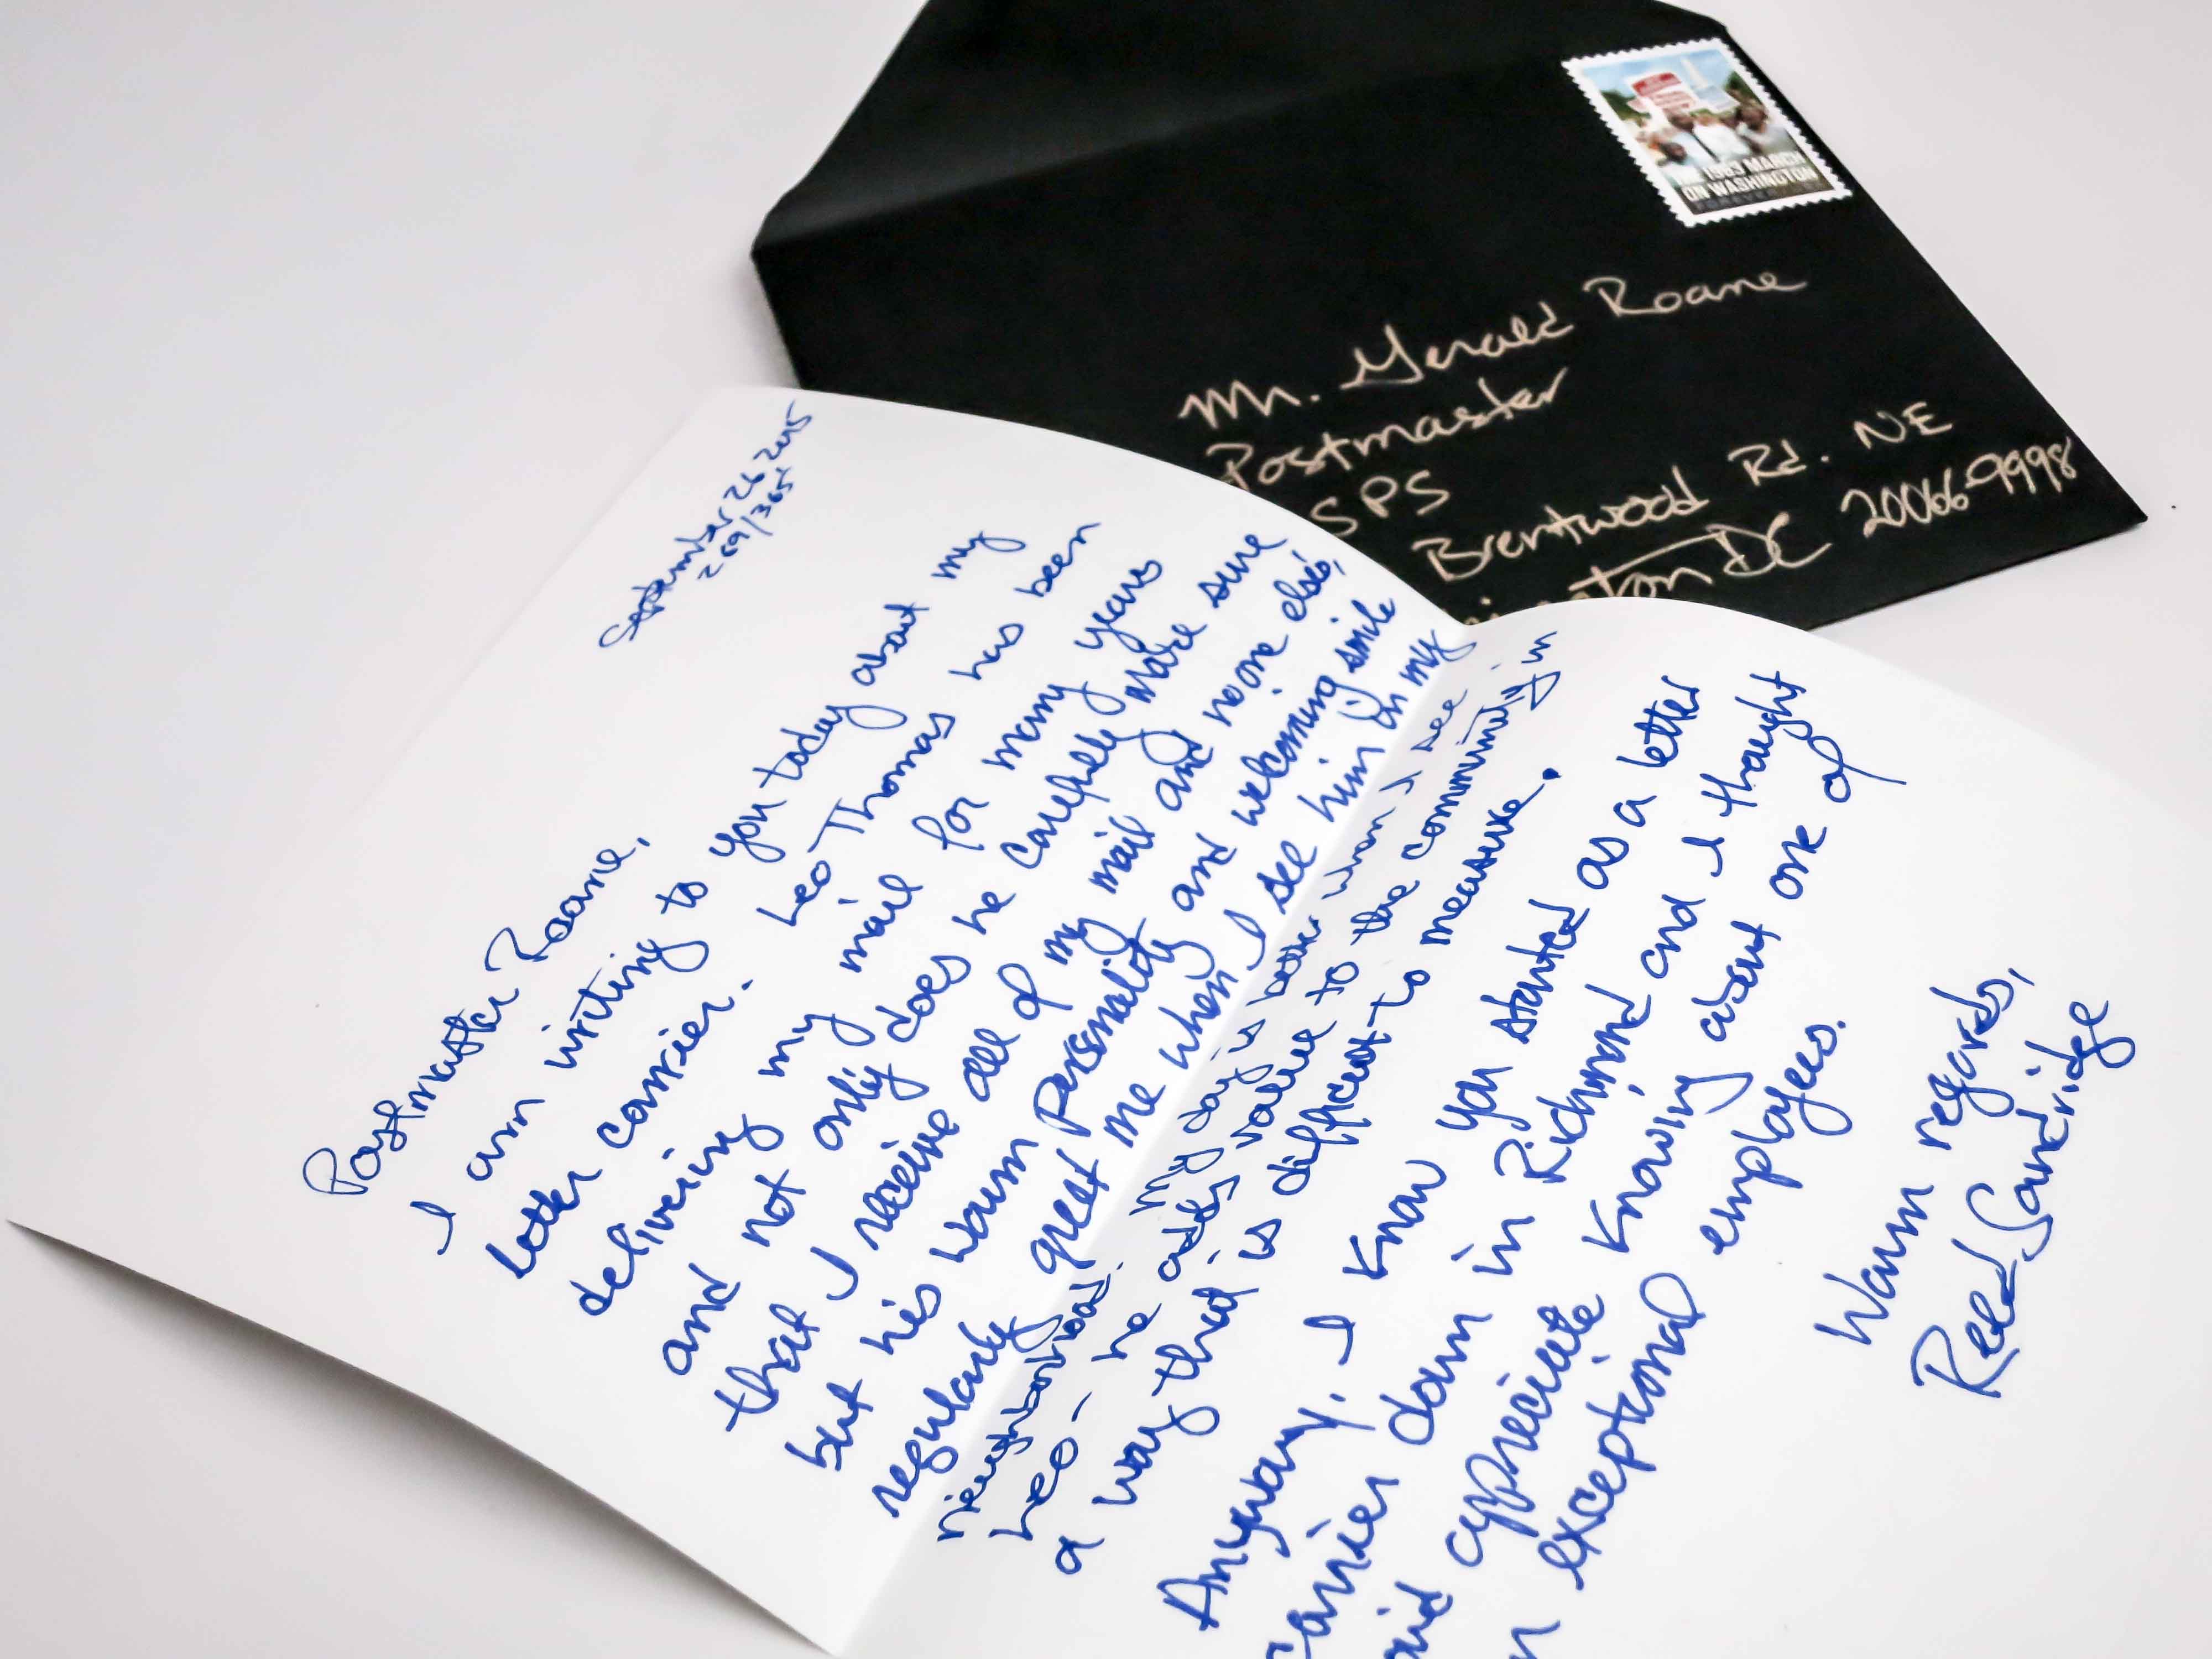 THE 1963 MARCH
ON WASHINGTON
FOREVER
Mr. Gerald Roane
Postmaster
SPS
Brentwood Rd. NE
ington DC 20066-9998
September 26 2015
269/365
Postmaster Roane,
I am writing to you today about my
letter carrier. Leo Thomas has been
delivering my mail for many years
and not only does he carefully make sure
that I receive all of my mail and no one else's,
but his warm personality and welcoming smile
regularly greet me when I see him in my
neighborhood. My day is better when I see
Leo - he adds value to the community in
a way that is difficult to measure.
Anyway, I know you started as a letter
carrier down in Richmond and I thought
appreciate knowing about one of
exceptional employees.
Warm regards,
Reed Sandridge